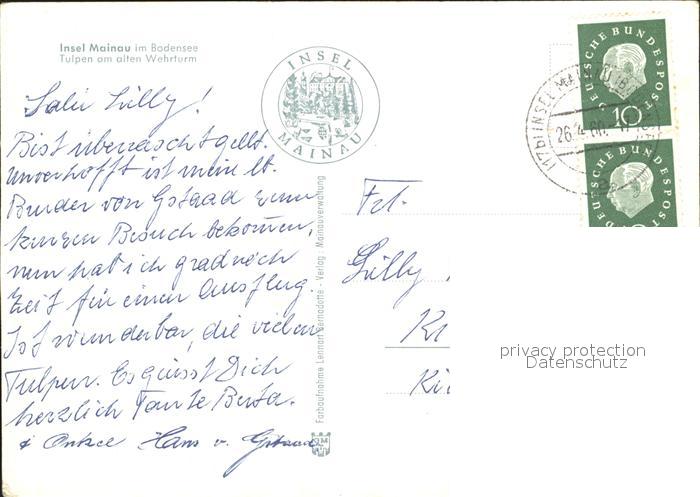 Insel Mainau im Bodensee
Tulpen am alten Wehrturm
INSEL
MAINAU
DEUTSCHE BUNDESPOST
10
DEUTSCHE BUNDESPOST
(17b) INSEL MAINAU
26.4.60.
Salü Lilly!
Bist überrascht gell.
Unverhofft ist mein lb.
Bruder von Gstaad zum
kurzen Besuch bekommen,
nun hat ich grad noch
Zeit für einen Ausflug.
Ist wunderbar, die vielen
Tulpen. Es grüsst Dich
herzlich Tante Berta.
& Onkel Hans v. Gstaad
Farbaufnahme Lennart Bernadotte - Verlag: Mainauverwaltung
Frl.
Lilly
privacy protection
Datenschutz